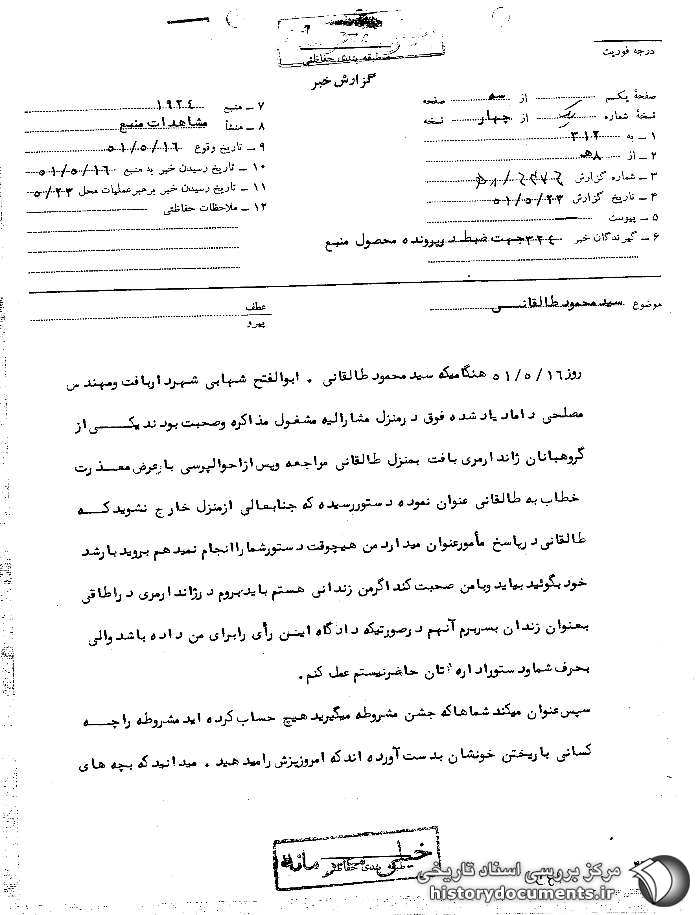 طبقه بندی حفاظتی
گزارش خبر
درجه فوریت
صفحهٔ یکم از سه صفحه
نسخهٔ شماره یک از چهار نسخه
۱ ـ به ۳۱۲
۲ ـ از ۸هـ
۳ ـ شماره گزارش
۴ ـ تاریخ گزارش ۵۱/۵/۲۳
۵ ـ پیوست
۶ ـ گیرندگان خبر ۳۲۴ جهت ضبط در پرونده محصول منبع
۷ ـ منبع ۱۹۲٤
۸ ـ منشأ مشاهدات منبع
۹ ـ تاریخ وقوع ۵۱/۵/۱۶
۱۰ ـ تاریخ رسیدن خبر به منبع ۵۱/۵/۱۶
۱۱ ـ تاریخ رسیدن خبر برهبر عملیات محل ۵/۲۳
۱۲ ـ ملاحظات حفاظتی
موضوع سید محمود طالقانی
عطف
پیرو
روز ۵۱/۵/۱۶ هنگامیکه سید محمود طالقانی ، ابوالفتح شهابی شهردار بافت ومهندس
مصلحی داماد یاد شده فوق در منزل مشارالیه مشغول مذاکره وصحبت بودند یکی از
گروهبانان ژاندارمری بافت بمنزل طالقانی مراجعه وپس ازاحوالپرسی باعرض معذرت
خطاب به طالقانی عنوان نموده دستوررسیده که جنابعالی ازمنزل خارج نشوید که
طالقانی درپاسخ مأمورعنوان میدارد من هیچوقت دستورشما راانجام نمیدهم بروید بارشد
خود بگوئید بیاید وبامن صحبت کند اگرمن زندانی هستم باید بروم درژاندارمری دراطاقی
بعنوان زندان بسربرم آنهم درصورتیکه دادگاه این رأی رابرای من داده باشد والی
بحرف شما ودستور اداره تان حاضرنیستم عمل کنم .
سپس عنوان میکند شماها که جشن مشروطه میگیرید هیچ حساب کرده اید مشروطه راچه
کسانی باریختن خونشان بدست آورده اند که امروزپزش رامیدهید . میدانید که بچه های
خیلی محرمانه
طبقه بندی حفاظتی
مرکز بررسی اسناد تاریخی
historydocuments.ir